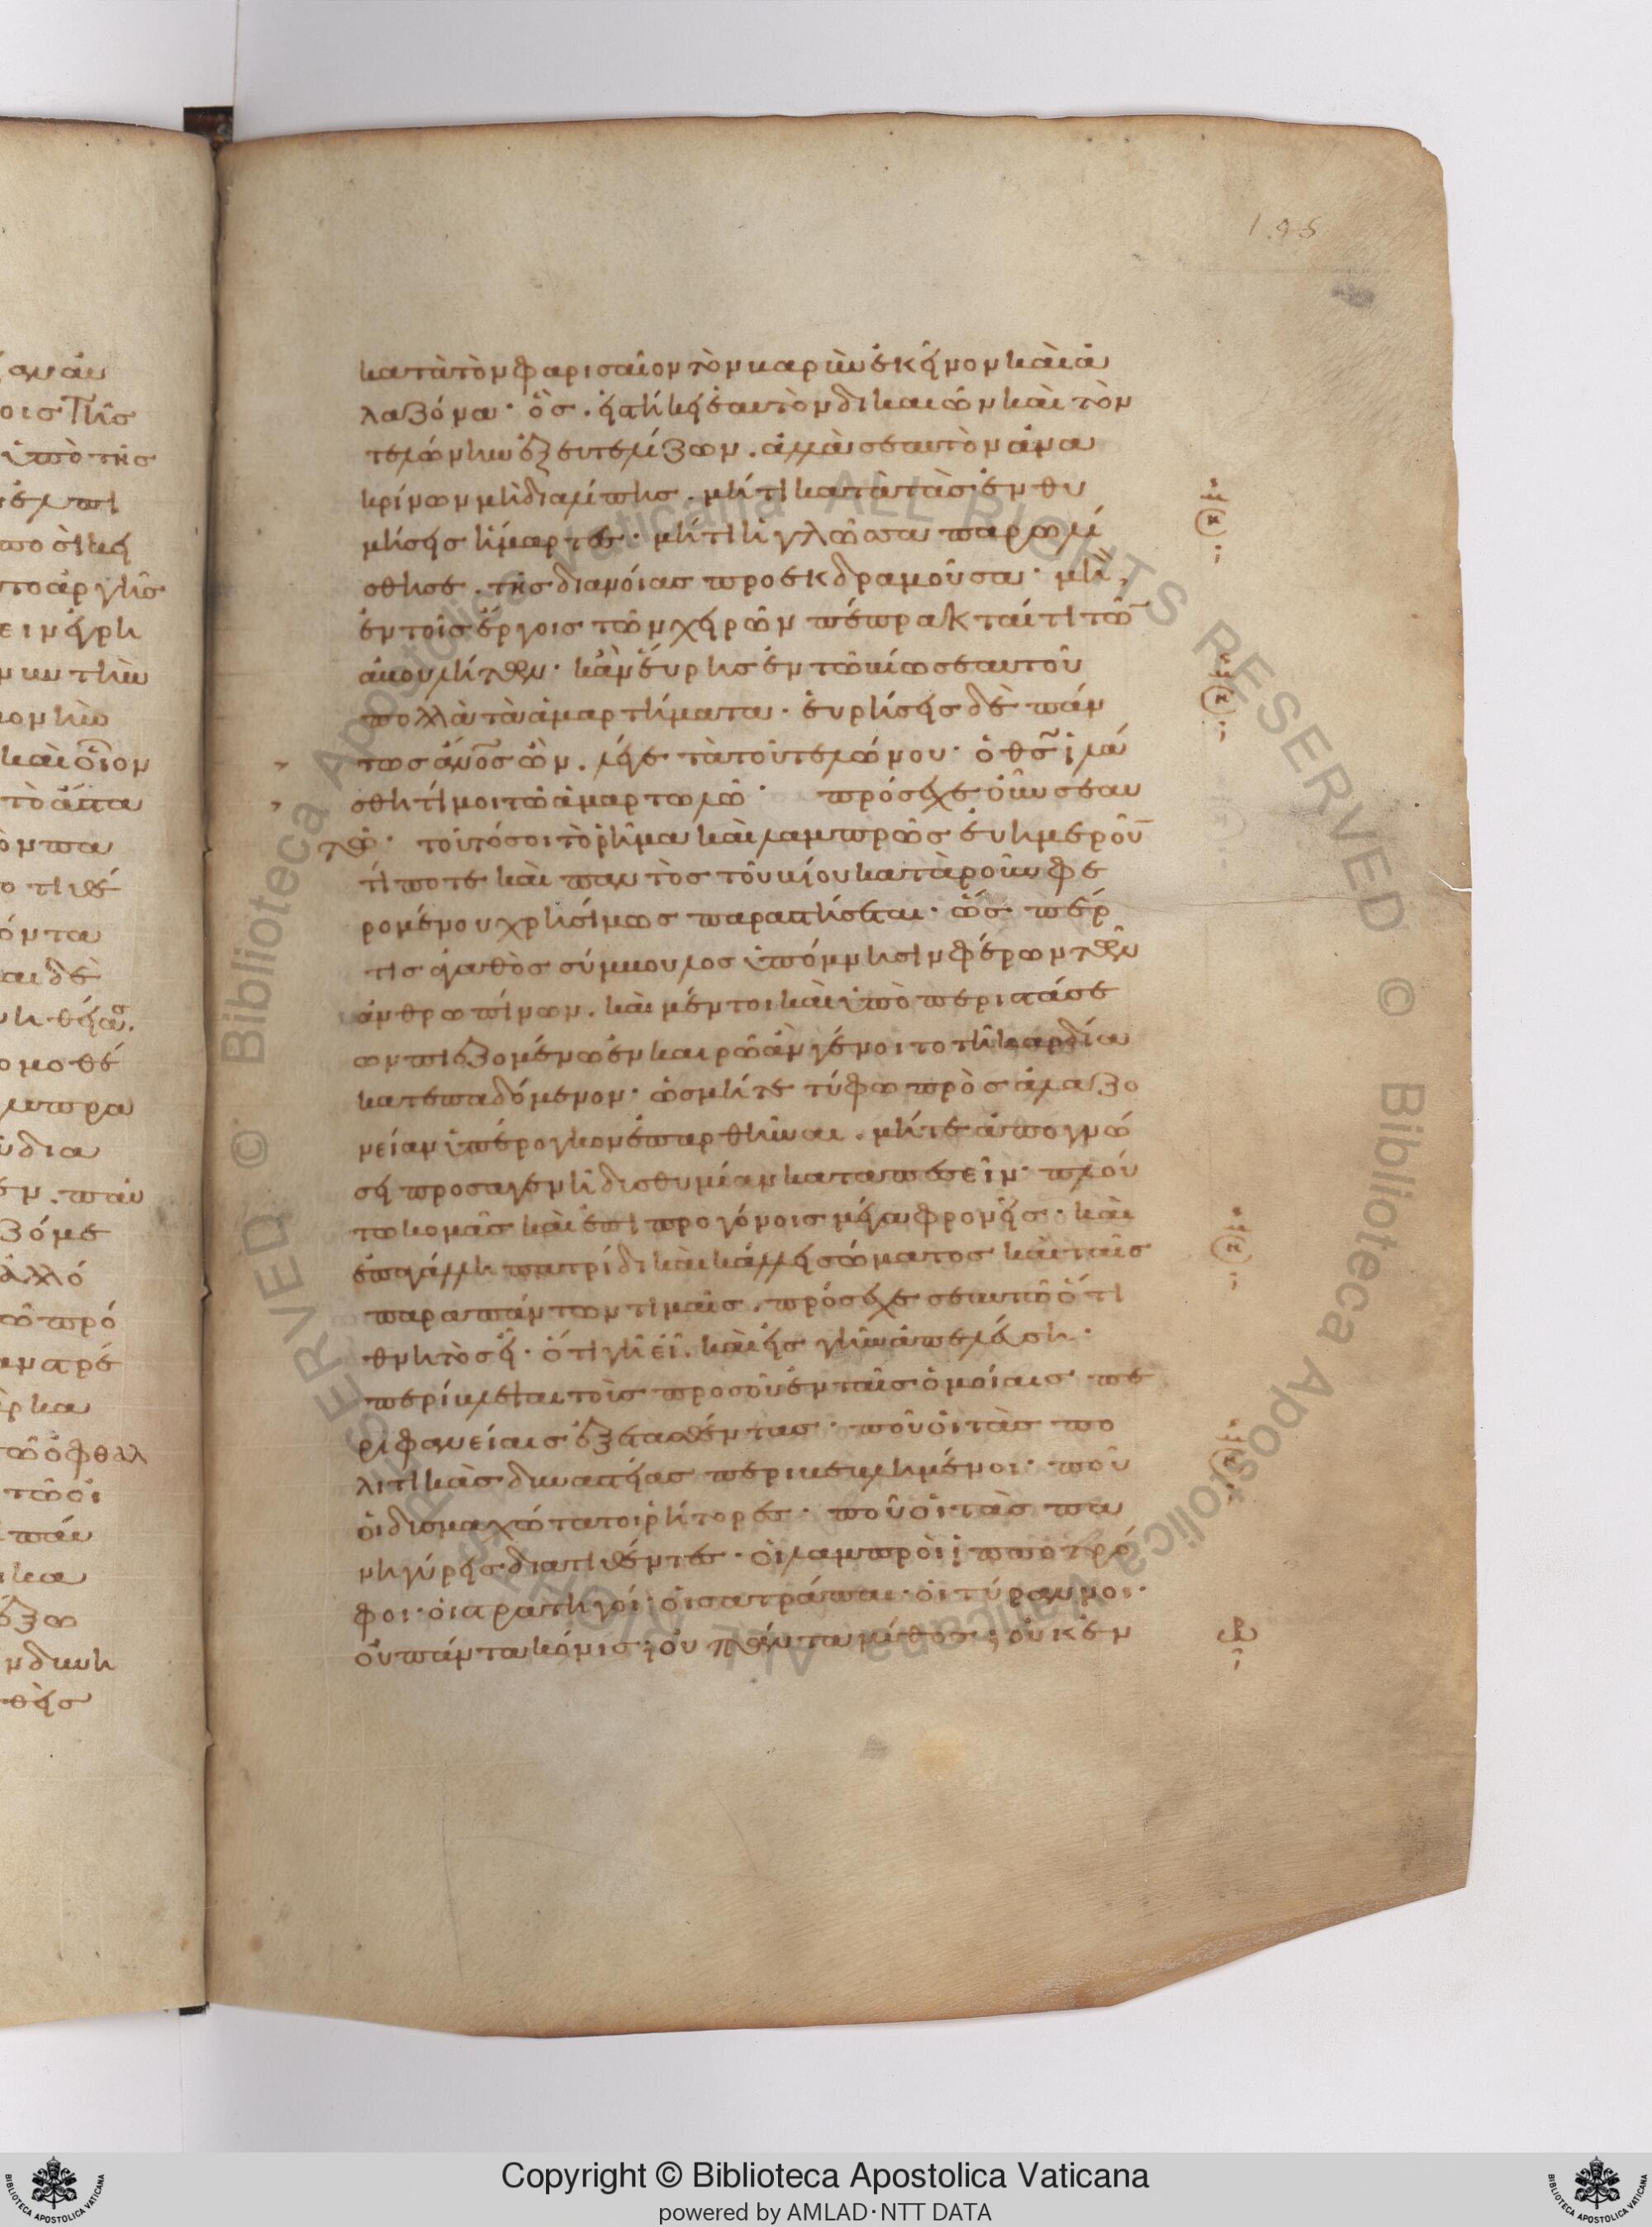 κατὰ τὸν φαρισαῖον τὸν βαρὺν ἐκεῖνον καὶ ἀ
λαζόνα· ὃς. εἱστήκει ἑαυτὸν δικαιῶν καὶ τὸν
τελώνην ἐξευτελίζων. ἀλλὰ σεαυτὸν ἀνα
κρίνων μὴ διαλίπης. μή τι κατὰ τὰς ἐνθυ
μήσεις ἥμαρτες· μή τι ἡ γλῶσσα παρωλί
σθησε. τῆς διανοίας προεκδραμοῦσα· μὴ,
ἐν τοῖς ἔργοις τῶν χειρῶν πέπρακταί τι τῶ
ἀβουλήτων· κἂν εὕρης ἐν τῶ βίω σεαυτοῦ
πολλὰ τὰ ἁμαρτήματα· εὑρήσεις δὲ πάν
τως ἄνος ὤν. λέγε τὰ τοῦ τελώνου· ὁ θς ἱλά
σθητί μοι τῶ ἁμαρτωλῶ· πρόσεχε οὖν σεαυ
τῶ· τοῦτό σοι τὸ ῥῆμα καὶ λαμπρῶς εὐημεροῦ
τί ποτε καὶ παντὸς τοῦ βίου κατὰ ροῦν φε
ρομένου χρησίμως παραστήσεται· ὥσπερ
τις ἀγαθὸς σύμβουλος ὑπόμνησιν φέρων τῶν
ἀνθρωπίνων. καὶ μέντοι καὶ ὑπὸ περιστάσε
ων πιεζομένω ἐν καιρῶ ἂν γένοιτο τῆ καρδία
κατεπαδόμενον· ὡς μήτε τύφω πρὸς ἀλαζο
νείαν ὑπέρογκον ἐπαρθῆναι. μήτε ἀπογνώ
σει προσαγενῆ δυσθυμίαν καταπεσεῖν· πλού
τω κομᾶς καὶ ἐπὶ προγόνοις μέγα φρονεῖς· καὶ
ἐπαγάλλη πατρίδι καὶ κάλλει σώματος καὶ ταῖς
παρα πάντων τιμαῖς. πρόσεχε σεαυτῶ ὅτι
θνητὸς εἶ· ὅτι γῆ εἶ. καὶ εἰς γῆν ἀπελεύση·
περίβλεψαι τοὺς προσοῦ ἐν ταῖς ὁμοίαις πε
ριφανείαις ἐξετασθέντας· ποῦ οἱ τὰς πο
λιτικὰς δυναστείας περιβεβλημένοι· ποῦ
οἱ δυσμαχώτατοι ῥήτορες· ποῦ οἱ τὰς πα
νηγύρεις διατιθέντες· οἱ λαμπροὶ ἱπποτρό
φοι· οἱ στρατηγοί· οἱ σατράπαι· οἱ τύραννοι·
οὐ πάντα κόνις; οὐ πάντα μῦθος; οὐκ ἐν
Copyright © Biblioteca Apostolica Vaticana
powered by AMLAD·NTT DATA